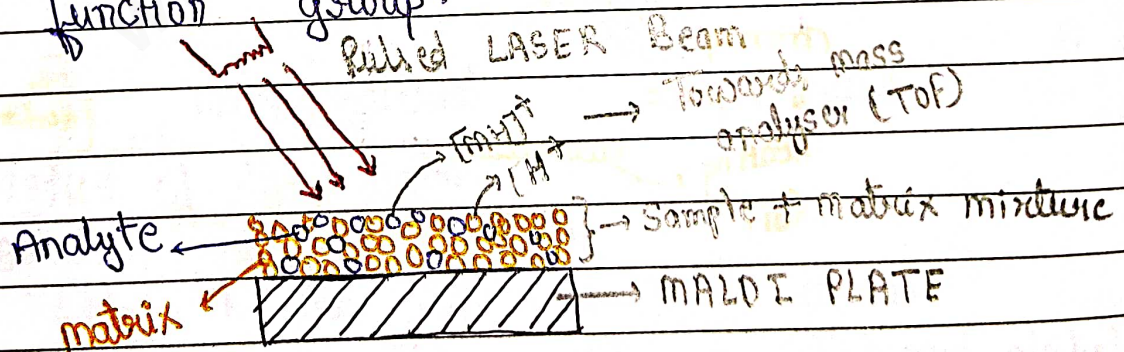 function group.
Pulsed LASER Beam
[MH]+ → Towards mass
analyser (TOF)
[H+
Analyte
} → Sample + matrix mixture
matrix
→ MALDI PLATE